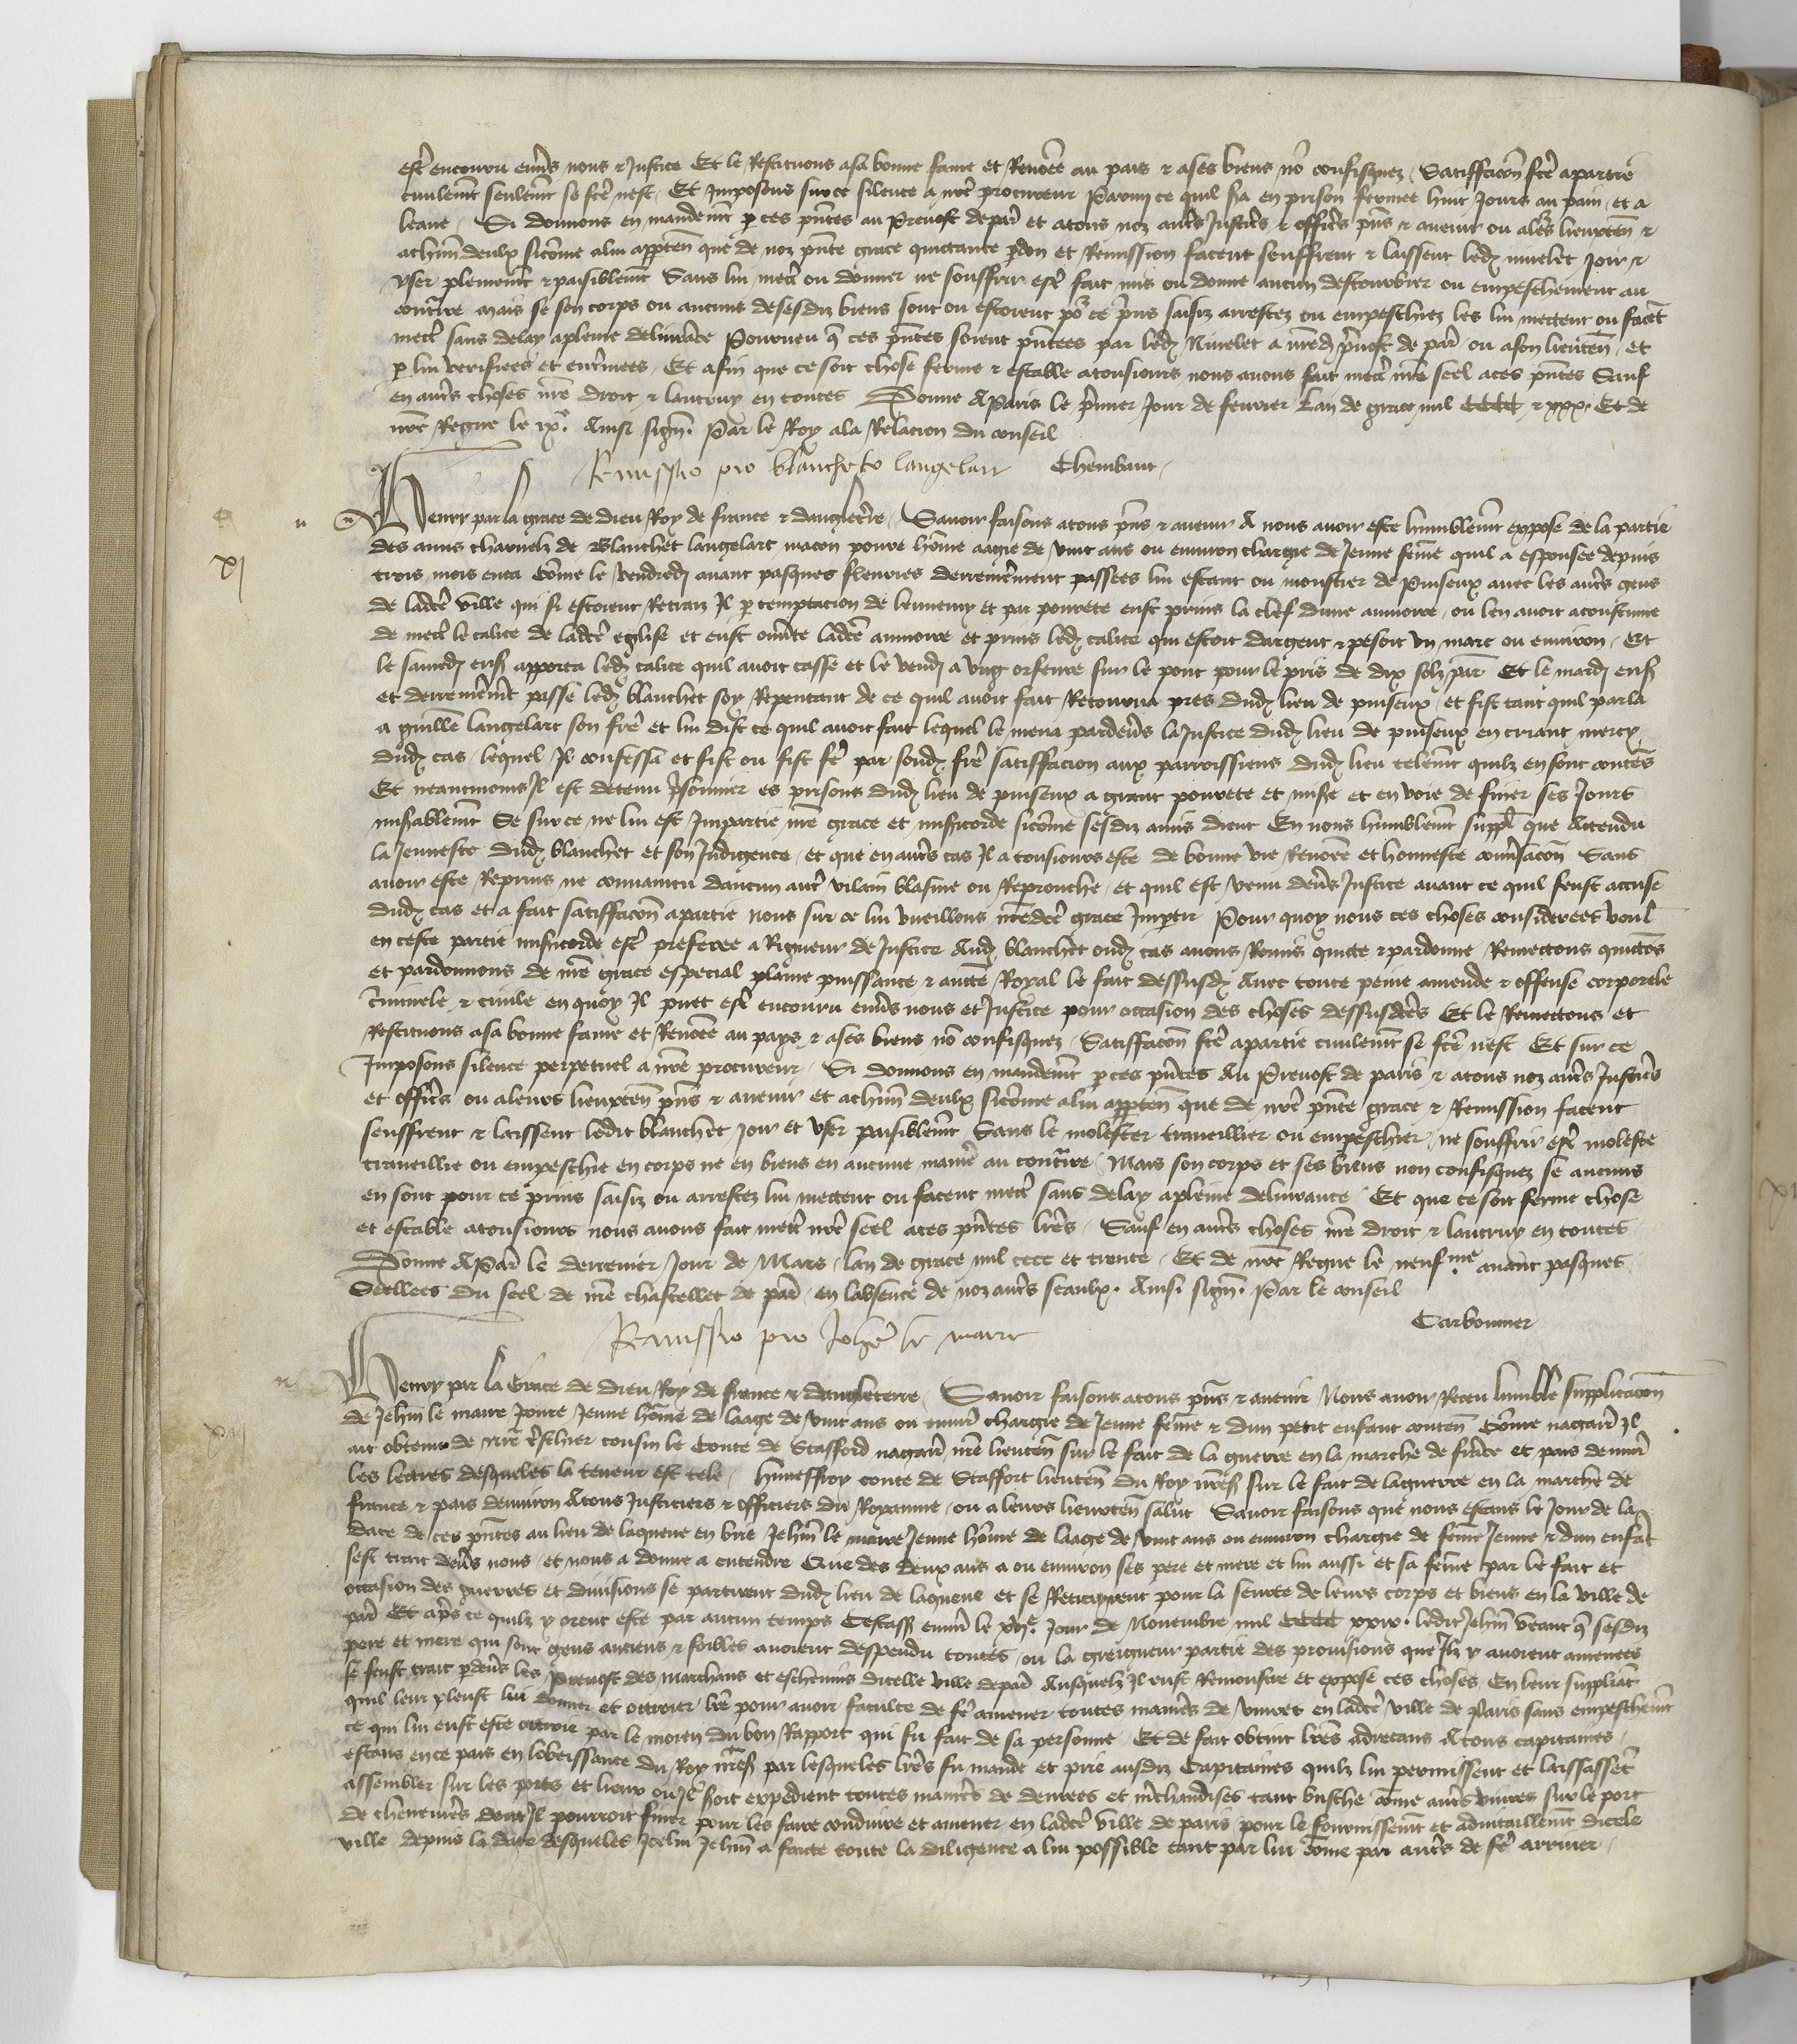 estre encouru envers nous et Justice Et le Restituons a sa bonne fame et Renommee au pais et a ses biens non confisquez Satisfaccion faicte a partie
civilement seulement se faicte nest Et Imposons sur ce silence a nostre procureur Parmy ce quil sera en prison fermee huit Jours au pain et a
leaue Si donnons en mandement par ces presentes au Prevost de paris et a tous noz autres Justiciers et officiers presens et avenir ou a leurs lieuxtenans et
a chacun deulx sicomme a lui appartendra que de noz presente grace quictance pardon et Remission facent seuffrent et laissent ledit nivelet Joir et
user plainement et paisiblement Sans lui mectre ou donner ne souffrir estre fait mis ou donne aucun destourbier ou empeschement au
contraire mais se son corps ou aucuns de sesdiz biens sont ou estoient pour ce prins saisiz arrestez ou empeschiez les lui mettent ou facent
mectre sans delay a pleine delivrance Pourveu que ces presentes soient presentees par ledit Nivelet a nostredit prevost de paris ou a son lieutenant et
par lui verifiees et enterinees Et afin que ce soit chose ferme et estable a tousiours nous avons fait mectre nostre seel a ces presentes Sauf
en autres choses nostre droit et lautruy en toutes Donne A Paris le premier Jour de fevrier Lan de grace mil CCCC et xxx Et de
nostre Regne le ixe Ainsi signe Par le Roy a la Relacion du conseil
Remissio pro blancheto langelart Chembaut
XI
Henry par la grace de dieu Roy de france et dangleterre Savoir faisons a tous presens et avenir A nous avoir este humblement expose de la partie
des amis charnelz de Blanchet langelart macon povre homme aagie de vint ans ou environ chargie de Jeune femme quil a espousee depuis
trois mois enca Comme le vendredi avant pasques fleuries derrenierement passees lui estant ou moustier de Puiseux avec les autres gens
de ladicte ville qui si estoient Retraiz Il par temptacion de lennemy et par povrete eust prins la clef dune aumoire ou len avoit acoustume
de mectre le calice de ladicte eglise et eust ouverte ladicte aumoire et prins ledit calice qui estoit dargent et pesoit un marc ou environ Et
le samedi ensuivant apporta ledit calice quil avoit casse et le vendi a ung orfevre sur le pont pour le pris de dix solz parisis Et le mardi ensuivant
et derrenierement passe ledit blanchet soy Repentant de ce quil avoit fait Retourna pres dudit lieu de puiseux et fist tant quil parla
a guillemin langelart son frere et lui dist ce quil avoit fait lequel le mena pardevers la Justice dudit lieu de puiseux en criant mercy
dudit cas lequel Il confessa et fist ou fist faire par sondit frere satisfacion aux parroissiens dudit lieu telement quilz en sont contens
Et neantmoins Il est detenu prisonnier es prisons dudit lieu de puiseux a grant povrete et misere et en voie de finer ses Jours
miserablement Se sur ce ne lui est Impartie nostre grace et misericorde sicomme sesdiz amis dient En nous humblement suppliant que Attendu
la Jeunesse dudit blanchet et son Indigence et que en autres cas Il a tousiours este de bonne vie Renommee et honneste conversacion Sans
avoir este Reprins ne convaincu daucun autre vilain blasme ou Reprouche et quil est venu devers Justice avant ce quil feust accuse
dudit cas et a fait satisfaccion a partie nous sur ce lui vueillons nostredicte grace Impartir Pour quoy nous ces choses considerees voulans
en ceste partie misericorde estre preferee a Rigueur de Justice Audit blanchet oudit cas avons Remis quicte et pardonne Remettons quictons
et pardonnons de nostre grace especial plaine puissance et auctorite Royal le fait dessusdit Avec toute peine amende et offense corporele
criminele et civile en quoy Il puet estre encouru envers nous et Justice pour occasion des choses dessusdictes Et le Remettons et
Restituons a sa bonne fame et Renommee au pays et a ses biens non confisquez Satisfaccion faicte a partie civilement se faicte nest Et sur ce
Imposons silence perpetuel a nostre procureur Si donnons en mandement par ces presentes Au Prevost de paris et a tous noz autres Justiciers
et officiers ou a leurs lieuxtenans presens et avenir et a chacun deulx sicomme a lui appartendra que de nostre presente grace et Remission facent
seuffrent et laissent ledit blanchet Joir et user paisiblement Sans le molester traveillier ou empeschier ne souffrir estre moleste
traveillie ou empeschie en corps ne en biens en aucune maniere au contraire Mais son corps et ses biens non confisquez se aucuns
en sont pour ce prins saisiz ou arrestez lui mettent ou facent mectre sans delay a pleine delivrance Et que ce soit ferme chose
et estable a tousiours nous avons fait mectre nostre seel a ces presentes lettres Sauf en autres choses nostre droit et lautruy en toutes
Donne A Paris le derrenier Jour de Mars lan de grace mil cccc et trente Et de nostre Regne le neufme avant pasques
Seellees du seel de nostre chastellet de paris en labsence de noz autres seaulx Ainsi signe Par le conseil
Carbonnier
Remissio pro Johanne le maire
XII
Henry par la Grace de dieu Roy de france et dangleterre Savoir faisons a tous presens et avenir Nous avoir Receu lumble supplicacion
de Jehan le maire Joune Jeune homme de laage de vint ans ou environ chargie de Jeune femme et dun petit enfant contenant Comme nagaires Il
ait obtenu de nostre treschier cousin le Conte de Stafford nagaires nostre lieutenant sur le fait de la guerre en la marche de france et pais denviron
les lettres desqueles la teneur est tele Humeffroy conte de Staffort lieutenant du Roy nostre sire sur le fait de la guerre en la marche de
france et pais denviron A tous Justiciers et officiers du Royaume ou a leurs lieuxtenans Salut Savoir faisons que nous estans le Jour de la
date de ces presentes au lieu de laqueue en brie Jehan le maire Jeune homme de laage de vint ans ou environ chargie de femme Jeune et dun enfant
sest trait devers nous et nous a donne a entendre Que des deux ans a ou environ ses pere et mere et lui aussi et sa femme par le fait et
occasion des guerres et divisions se partirent dudit lieu de laqueue et se Retrayrent pour la seurte de leurs corps et biens en la ville de
paris Et apres ce quilz y orent este par aucun temps Cestassavoir environ le xvije Jour de Novembre mil CCCC xxix ledit Jehan veant que sesdiz
pere et mere qui sont gens anciens et foibles avoient despendu toutes ou la greigneur partie des provisions que Ilz y avoient amenees
se feust trait pardevers les Prevost des marchans et eschevins dicelle ville de paris Ausquelz Il eust Remonstre et expose ces choses En leur suppliant
quil leur pleust lui donner et ottroier lettre pour avoir faculte de faire amener toutes manieres de vivres en ladicte ville de Paris sans empeschement
ce qui lui eust este ottroie par le moien du bon Rapport qui fu fait de sa personne Et de fait obtint lettres adrecans A tous capitaines
estans en ce pais en lobeissance du Roy nostre sire par lesqueles lettres fu mande et prie ausdiz Capitaines quilz lui permissent et laissassent
assembler sur les pors et lieux ou Il seroit expedient toutes manieres de denrees et marchandises tant busche comme autres vivres sur le port
de chenevieres dont Il pourroit finer pour les faire conduire et amener en ladicte ville de paris pour le fournissement et advitaillement dicele
ville depuis la date desqueles Icelui Jehan a faicte toute la diligence a lui possible tant par lui comme par autres de faire arriver